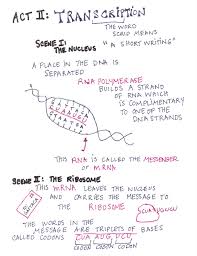 ACT II: TRANSCRIPTION
THE WORD
SCRIBO MEANS
SCENE I:
THE NUCLEUS
"A SHORT WRITING"
A PLACE IN THE DNA IS
SEPARATED
RNA POLYMERASE
BUILDS A STRAND
OF RNA WHICH
IS COMPLIMENTARY
TO ONE OF THE
DNA STRANDS
THIS RNA IS CALLED THE MESSENGER
OR mRNA
SCENE II: THE RIBOSOME
THIS mRNA LEAVES THE NUCLEUS
AND CARRIES THE MESSAGE TO
THE RIBOSOME
THE WORDS IN THE
MESSAGE ARE TRIPLETS OF BASES
CALLED CODONS
CODON CODON CODON